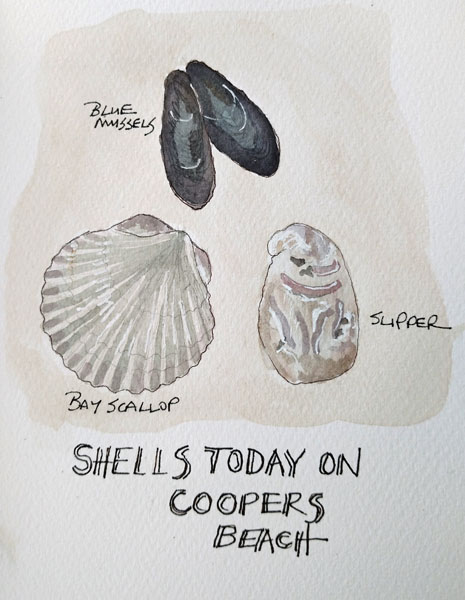 BLUE
MUSSELS
SLIPPER
BAY SCALLOP
SHELLS TODAY ON
COOPERS
BEACH